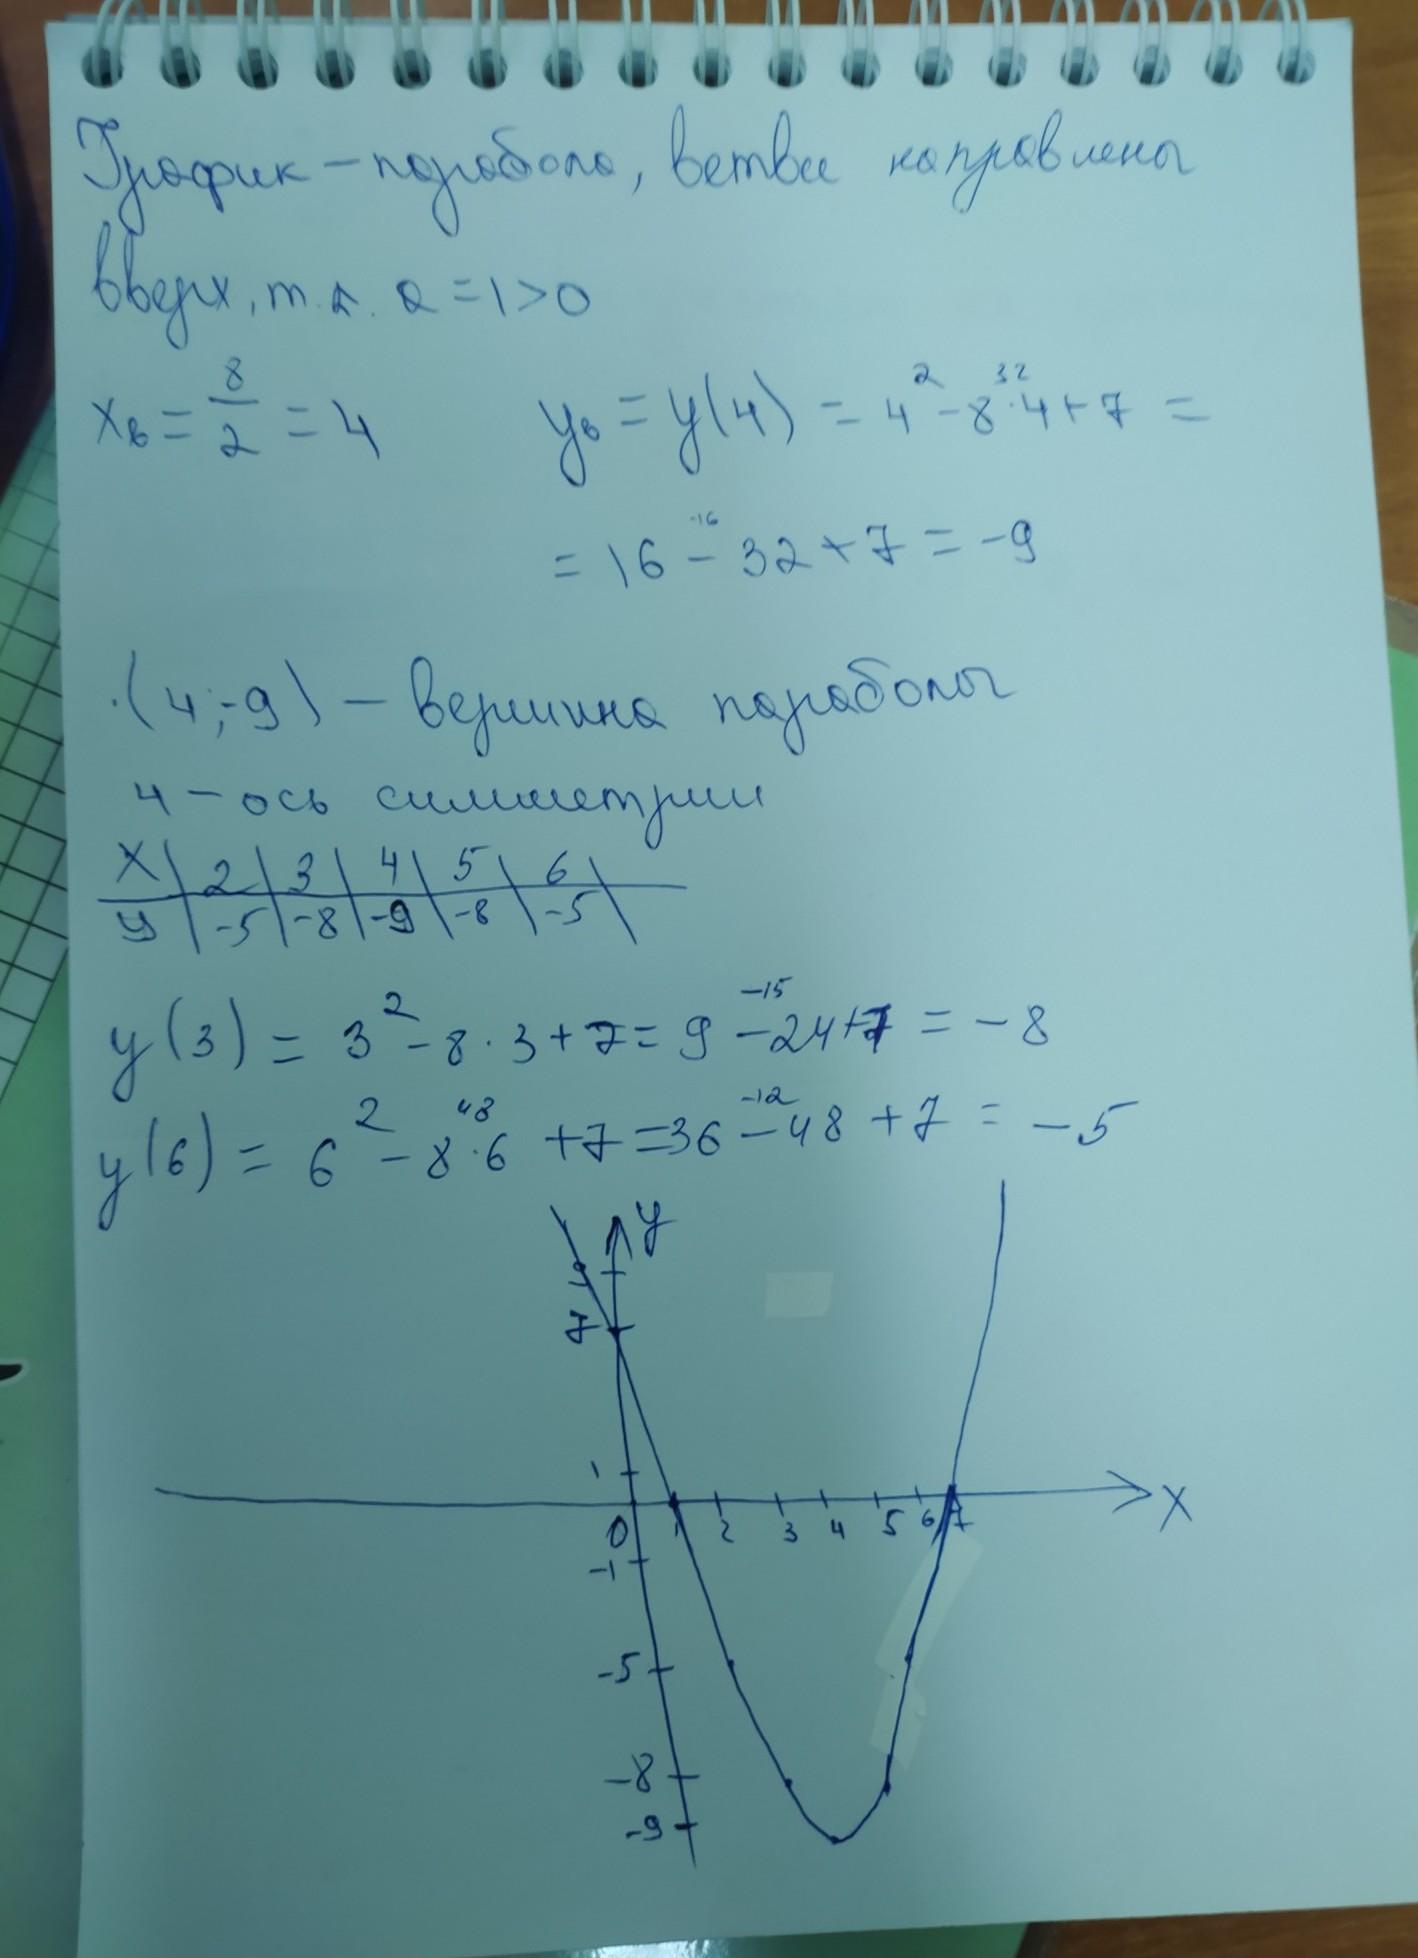 График – парабола, ветви направлены
вверх, т.к. a = 1 > 0
xв = 8/2 = 4
yв = y(4) = 4² - 8·4 + 7 =
32
-16
= 16 - 32 + 7 = -9
·(4;-9) – вершина параболы
4 – ось симметрии
x | 2 | 3 | 4 | 5 | 6 |
y | -5 | -8 | -9 | -8 | -5 |
-15
y(3) = 3² - 8·3 + 7 = 9 - 24 + 7 = -8
48 -12
y(6) = 6² - 8·6 + 7 = 36 - 48 + 7 = -5
y
9
7
1
0 1 2 3 4 5 6 7 X
-1
-5
-8
-9